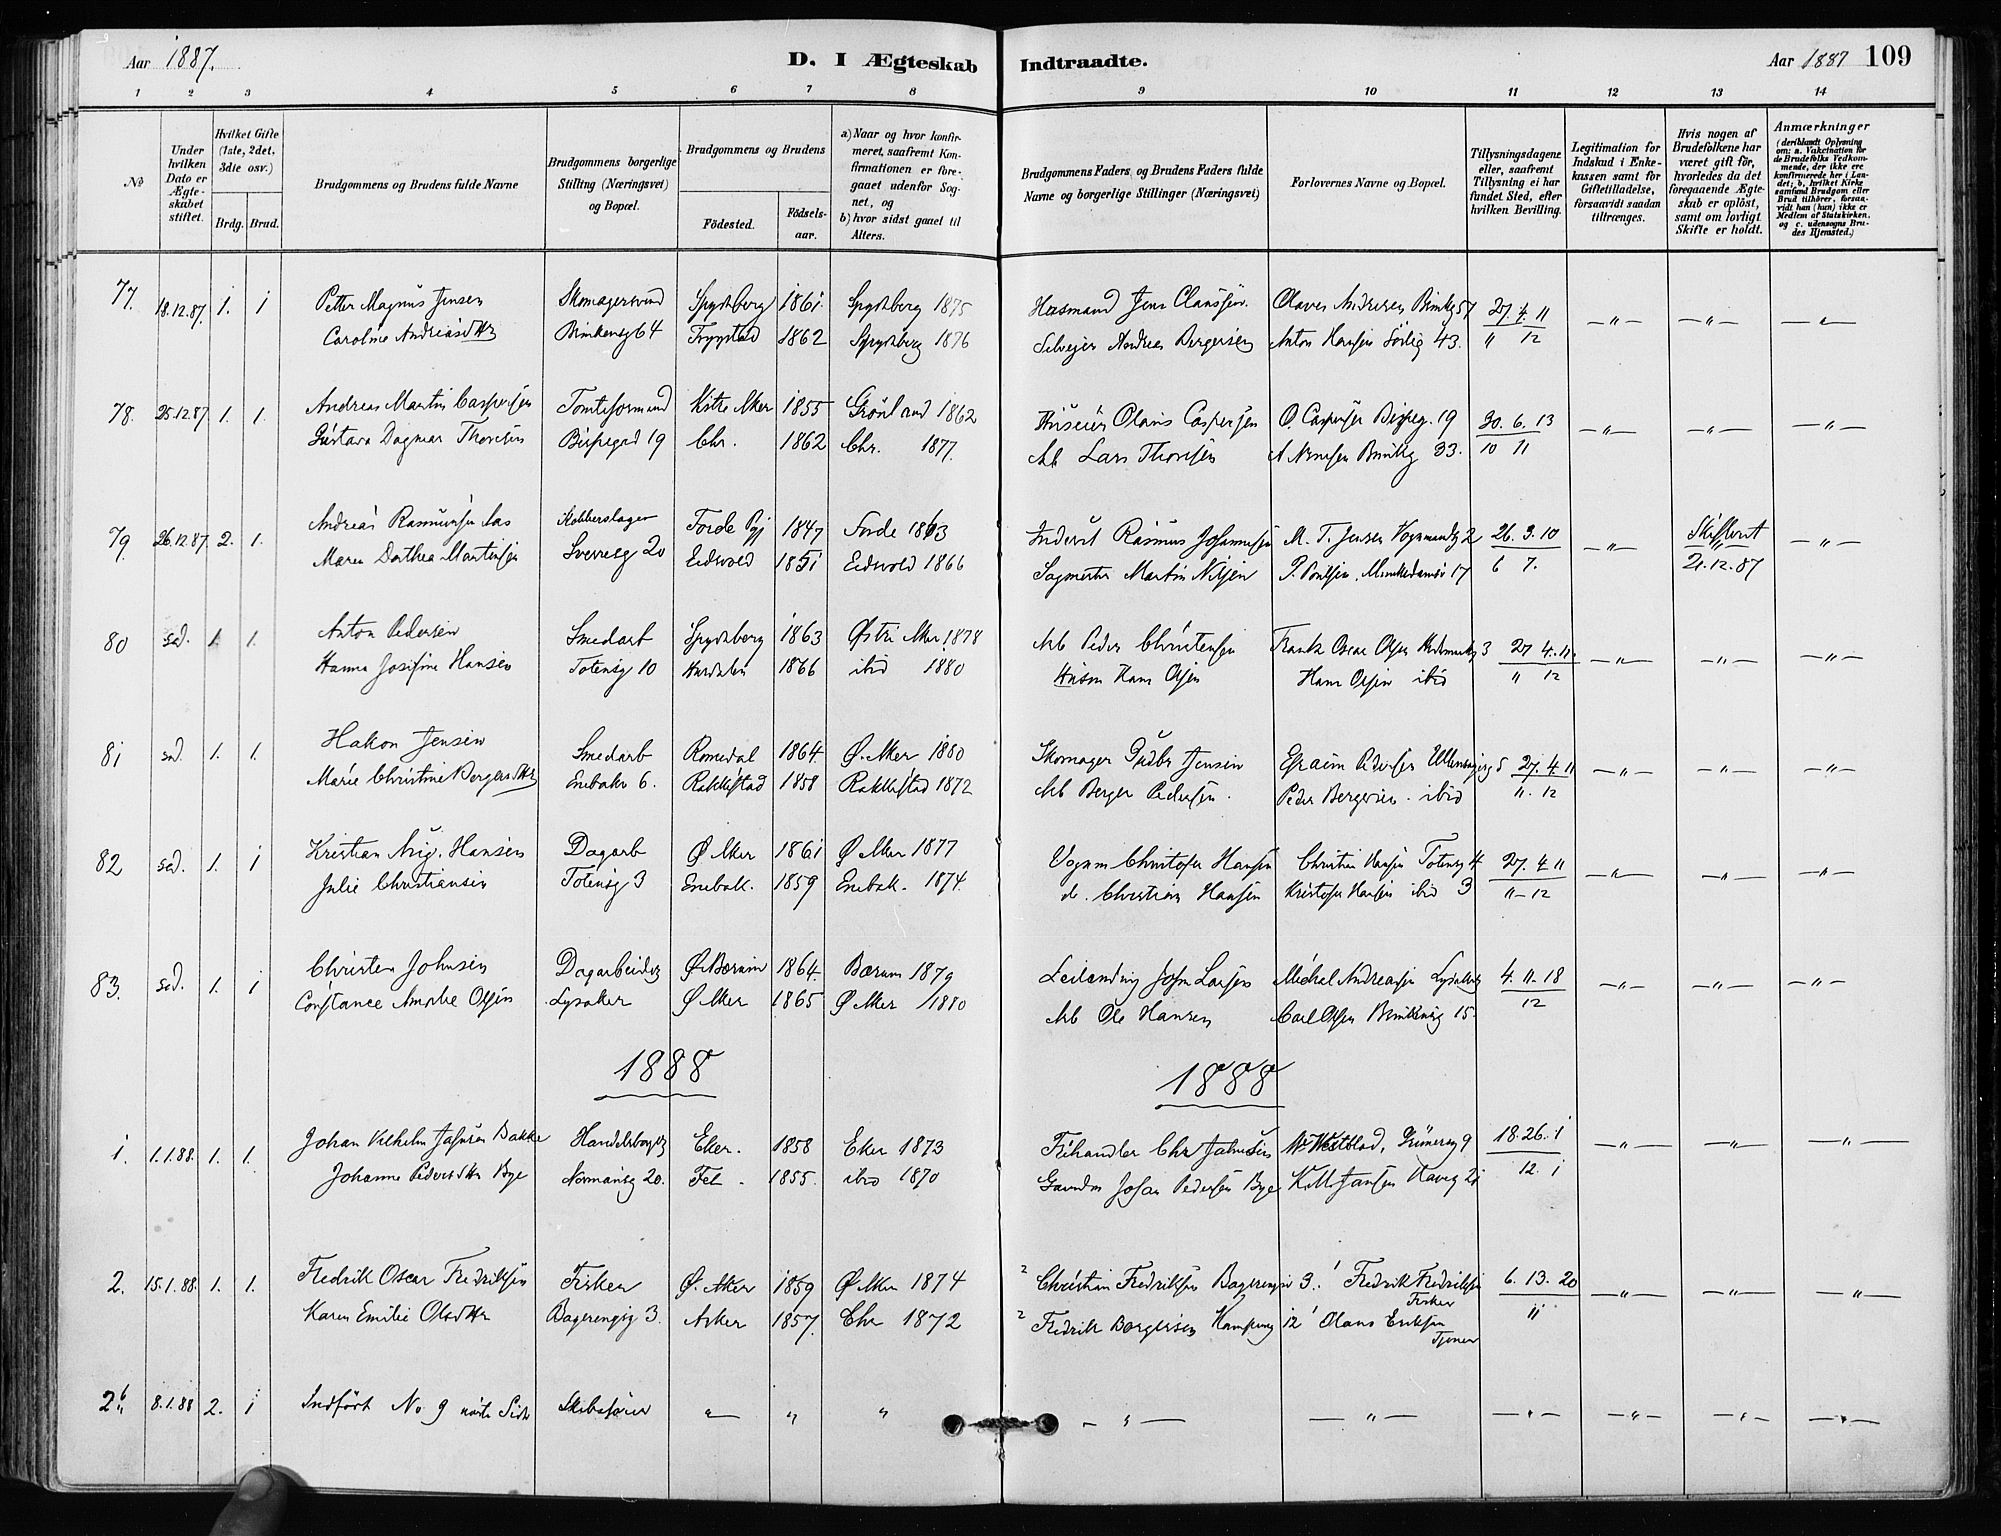 Aar 1887.
D. I Ægteskab Indtraadte.
Aar 1887 109
1 2 3 4 5 6 7 8 9 10 11 12 13 14
No
Under hvilken Dato er Ægteskabet stiftet.
Hvilket Gifte (1ste, 2det, 3die osv.)
Brdg. Brud.
Brudgommens og Brudens fulde Navne
Brudgommens borgerlige Stilling (Næringsvei) og Bopæl.
Brudgommens og Brudens
Födested.
Födselsaar.
a) Naar og hvor konfirmeret, saafremt Konfirmationen er foregaaet udenfor Sognet, og
b) hvor sidst gaaet til Alters.
Brudgommens Faders, og Brudens Faders fulde Navne og borgerlige Stillinger (Næringsvei)
Forlovernes Navne og Bopæl.
Tillysningsdagene eller, saafremt Tillysning ei har fundet Sted, efter hvilken Bevilling.
Legitimation for Indskud i Enkekassen samt for Giftetilladelse, forsaavidt saadan tiltrænges.
Hvis nogen af Brudefolkene har været gift för, hvorledes da det foregaaende Ægteskab er oplöst, samt om lovligt Skifte er holdt.
Anmærkninger (deriblandt Oplysning om: a. Vakcination for de Brudefolks Vedkommende, der ikke ere konfirmerede her i Landet; b, hvilket Kirkesamfund Brudgom eller Brud tilhörer, forsaavidt han (hun) ikke er Medlem af Statskirken, og c. udensogns Brudes Hjemsted.)
77. 18.12.87. 1. 1 Petter Magnus Jensen Skomagersvend Spydeberg 1861 Spydeberg 1875 Husmand Jens Clausen Olaves Andresen Brinkg 57 27. 4. 11 —„— —„— —„—
Caroline Andreasdttr Brinkeng 64 Trygstad 1862 Spydeberg 1876 Selveier Andreas Bergersen Anton Hansen Sörlig 43. „ 12
78. 25.12.87. 1. 1. Andreas Martin Caspersen Tomteformand Vestre Aker 1855 Grönland 1862 Huseier Olaus Caspersen O. Caspersen Bispeg. 19 30. 6. 13 —„— —„— —„—
Gustava Dagmar Thoresen Bispegd 19 Chr. 1862 Chr. 1877. Arb Lars Thoresen 33. 10 11
79 26.12.87. 2. 1. Andreas Rasmussen Aas Kobberslager Förde Pgj 1847 Förde 1863 Inderst Rasmus Johannesen M. T. Jensen Vognmandsg 2 26. 3. 10 —„— Skifteret —„—
Maren Dorthea Martinsen Sverresg 20 Eidsvold 1851 Eidsvold 1866 Sagmester Martin Nilsen P. Poulsen, Munkedamsv 17 6 7. 21.12.87
80 sad. 1. 1. Anton Pedersen Smedarb Spydeberg 1863 Östre Aker 1878 Arb Peder Christensen Frantz Oscar Olsen Hedemarksg 3 27 4. 11. —„— —„— —„—
Hanna Josefine Hansen Totensg 10 Hurdalen 1866 ibid 1880 Husm Hans Olsen Hans Olsen ibid „ 12
81 sad. 1. 1. Hakon Jensen Smedarb Romedal 1864. Ø. Aker 1880 Skomager Gudbr Jensen Efraim Pedersen Ullensakerg 5 27. 4. 11 —„— —„— —„—
Marie Christine Bergersdttr Enebakv 6. Rakkestad 1858 Rakkestad 1872 Arb Berger Pedersen. Peder Bergersen. ibid „. 12
82 sad. 1. 1 Kristian Aug. Hansen Dagarb Ø Aker 1861 Ø Aker 1877 Vognm Christofer Hansen Christian Hansen Totensg 4 27. 4 11 —„— —„— —„—
Julie Christiansen Totensg 3 Enebak. 1859 Enebak. 1874. d. Christian Hansen Kristofer Hansen ibid 3 „— 12
83. sad. 1. 1 Christen Johnsen Dagarbeider Ø. Bærum 1864. Bærum 1879 Leilænding John Larsen Michal Andreasen Lysaker 4. 11. 18 —„— —„— —„—
Constance Amalie Olsen Lysaker Ø Aker 1865 Ø Aker 1880 Arb Ole Hansen Carl Olsen Brinkeng 15. 12
1888 1888
1. 1.1.88. 1. 1. Johan Vilhelm Johnsen Bakke Handelsborger Eker. 1858 Eker 1873 Fehandler Chr Johnsen Westblad, Grünersg 9 18. 26. 1 —„— —„— —„—
Johanne Pedersdttr Bye Normansg 20. Fet. 1855. ibid 1870 Gaardm Johan Pedersen Bye K. M. Jansen 12. 1
2. 15.1.88. 1. 1. Fredrik Oscar Fredriksen Fisker Ø. Aker 1859 Ø. Aker 1874 2 Christian Fredriksen Bagerengsv 3. 1 Fredrik Fredriksen Fisker 6. 13. 20 —„— —„— —„—
Karen Emilie Olsdttr Bagerengsg 3. Asker 1857. Chr 1872 2 Fredrik Borgersen Kampeng 12 1 Olaus Eriksen Tjener 11
2b 8.1.88 2. 1 Indfört No 9 næste Side Skibsfører „ „ „ —„— —„— —„— —„— —„— —„—